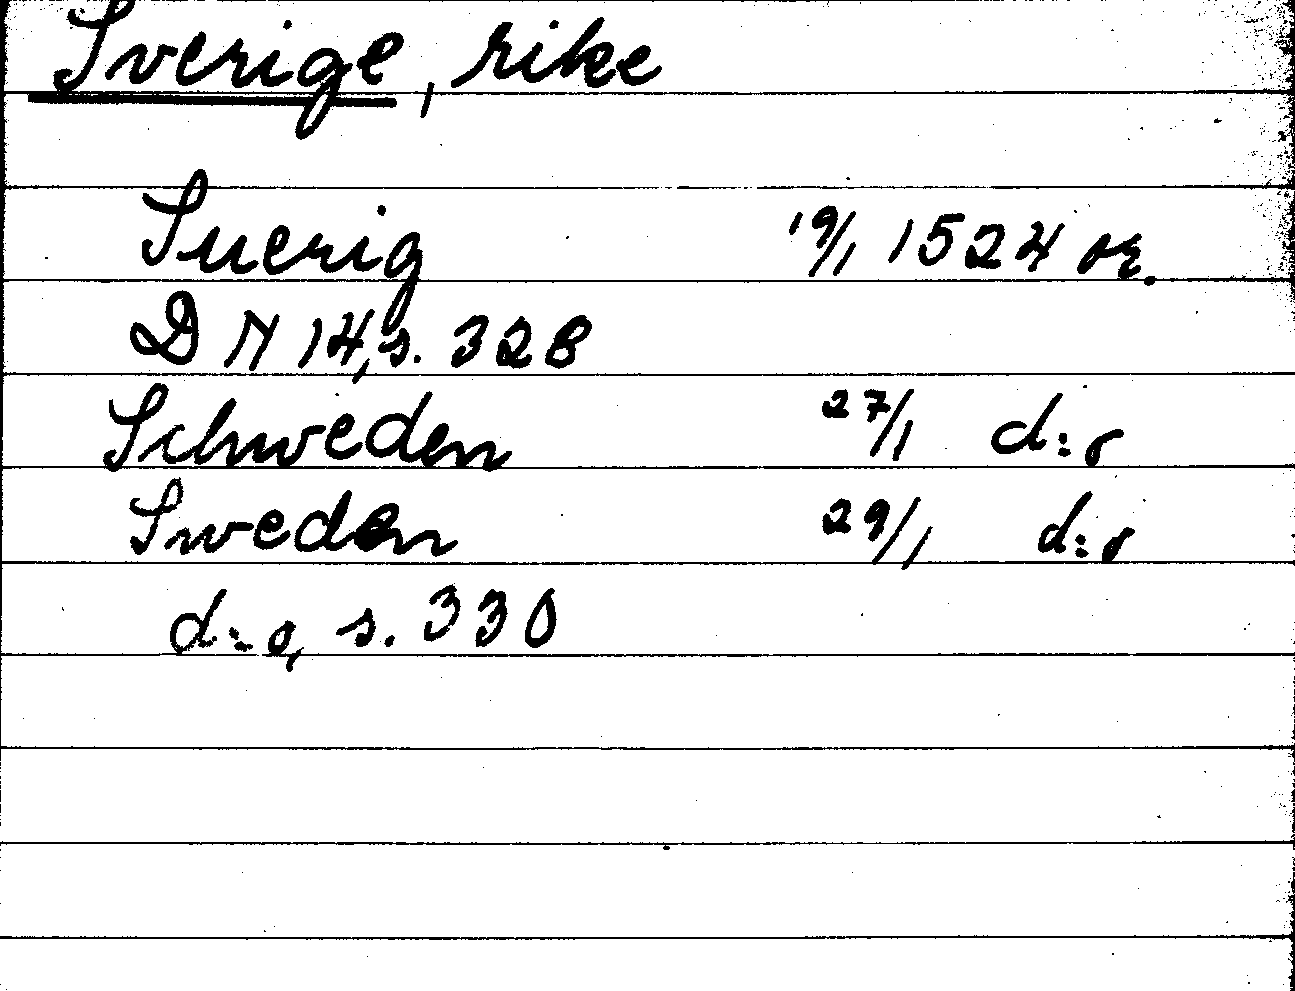 Sverige, rike
Suerig 19/1 1524 or.
DN 14, s. 328
Schweden 27/1 d:o
Sweden 29/1 d:o
d:o, s. 330